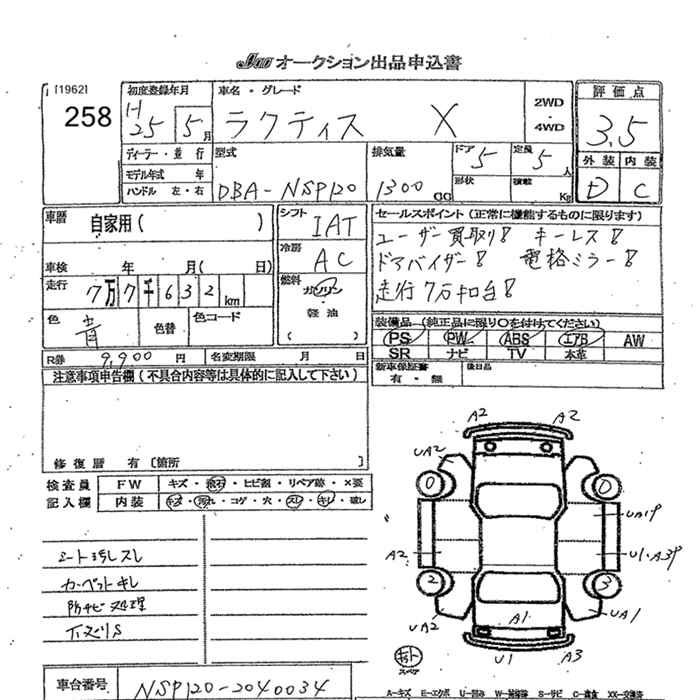 JU オークション出品申込書
[1962]
258
初度登録年月
H25 5月
車名・グレード
ラクティス X
2WD
・
4WD
評価点
3.5
外装 内装
D C
ディーラー・並行
モデル年式 年
ハンドル 左・右
型式
DBA-NSP120
排気量
1300 CC
ドア 5
形状
定員 5人
積載 Kg
車暦 自家用( )
車検 年 月( 日)
走行 7万7千632km
色 青
色替
色コード
R券 9,900円
名変期限 月 日
シフト IAT
冷房 AC
燃料
ガソリン
・
軽油
( )
セールスポイント(正常に機能するものに限ります)
ユーザー買取り! キーレス!
ドアバイザー! 電格ミラー!
走行7万キロ台!
装備品(純正品に限り○を付けてください)
PS PW ABS エアB AW
SR ナビ TV 本革
新車保証書
有・無
後日品
注意事項申告欄(不具合内容等は具体的に記入して下さい)
修復暦 有〔箇所 〕
検査員
記入欄
FW キズ・飛石・ヒビ割・リペア跡・×要
内装 キズ・汚れ・コゲ・穴・スレ・キレ・破レ
シート汚レスレ
カーペットキレ
防サビ処理
下スリS
車台番号 NSP120-2040034
A2 A2
UA2
0 0
UA1P
A2
U1・A3P
2 3
UA2
A1
UA1
U1 A3
スペア
A-キズ E-エクボ U-凹み S-サビ C-腐食